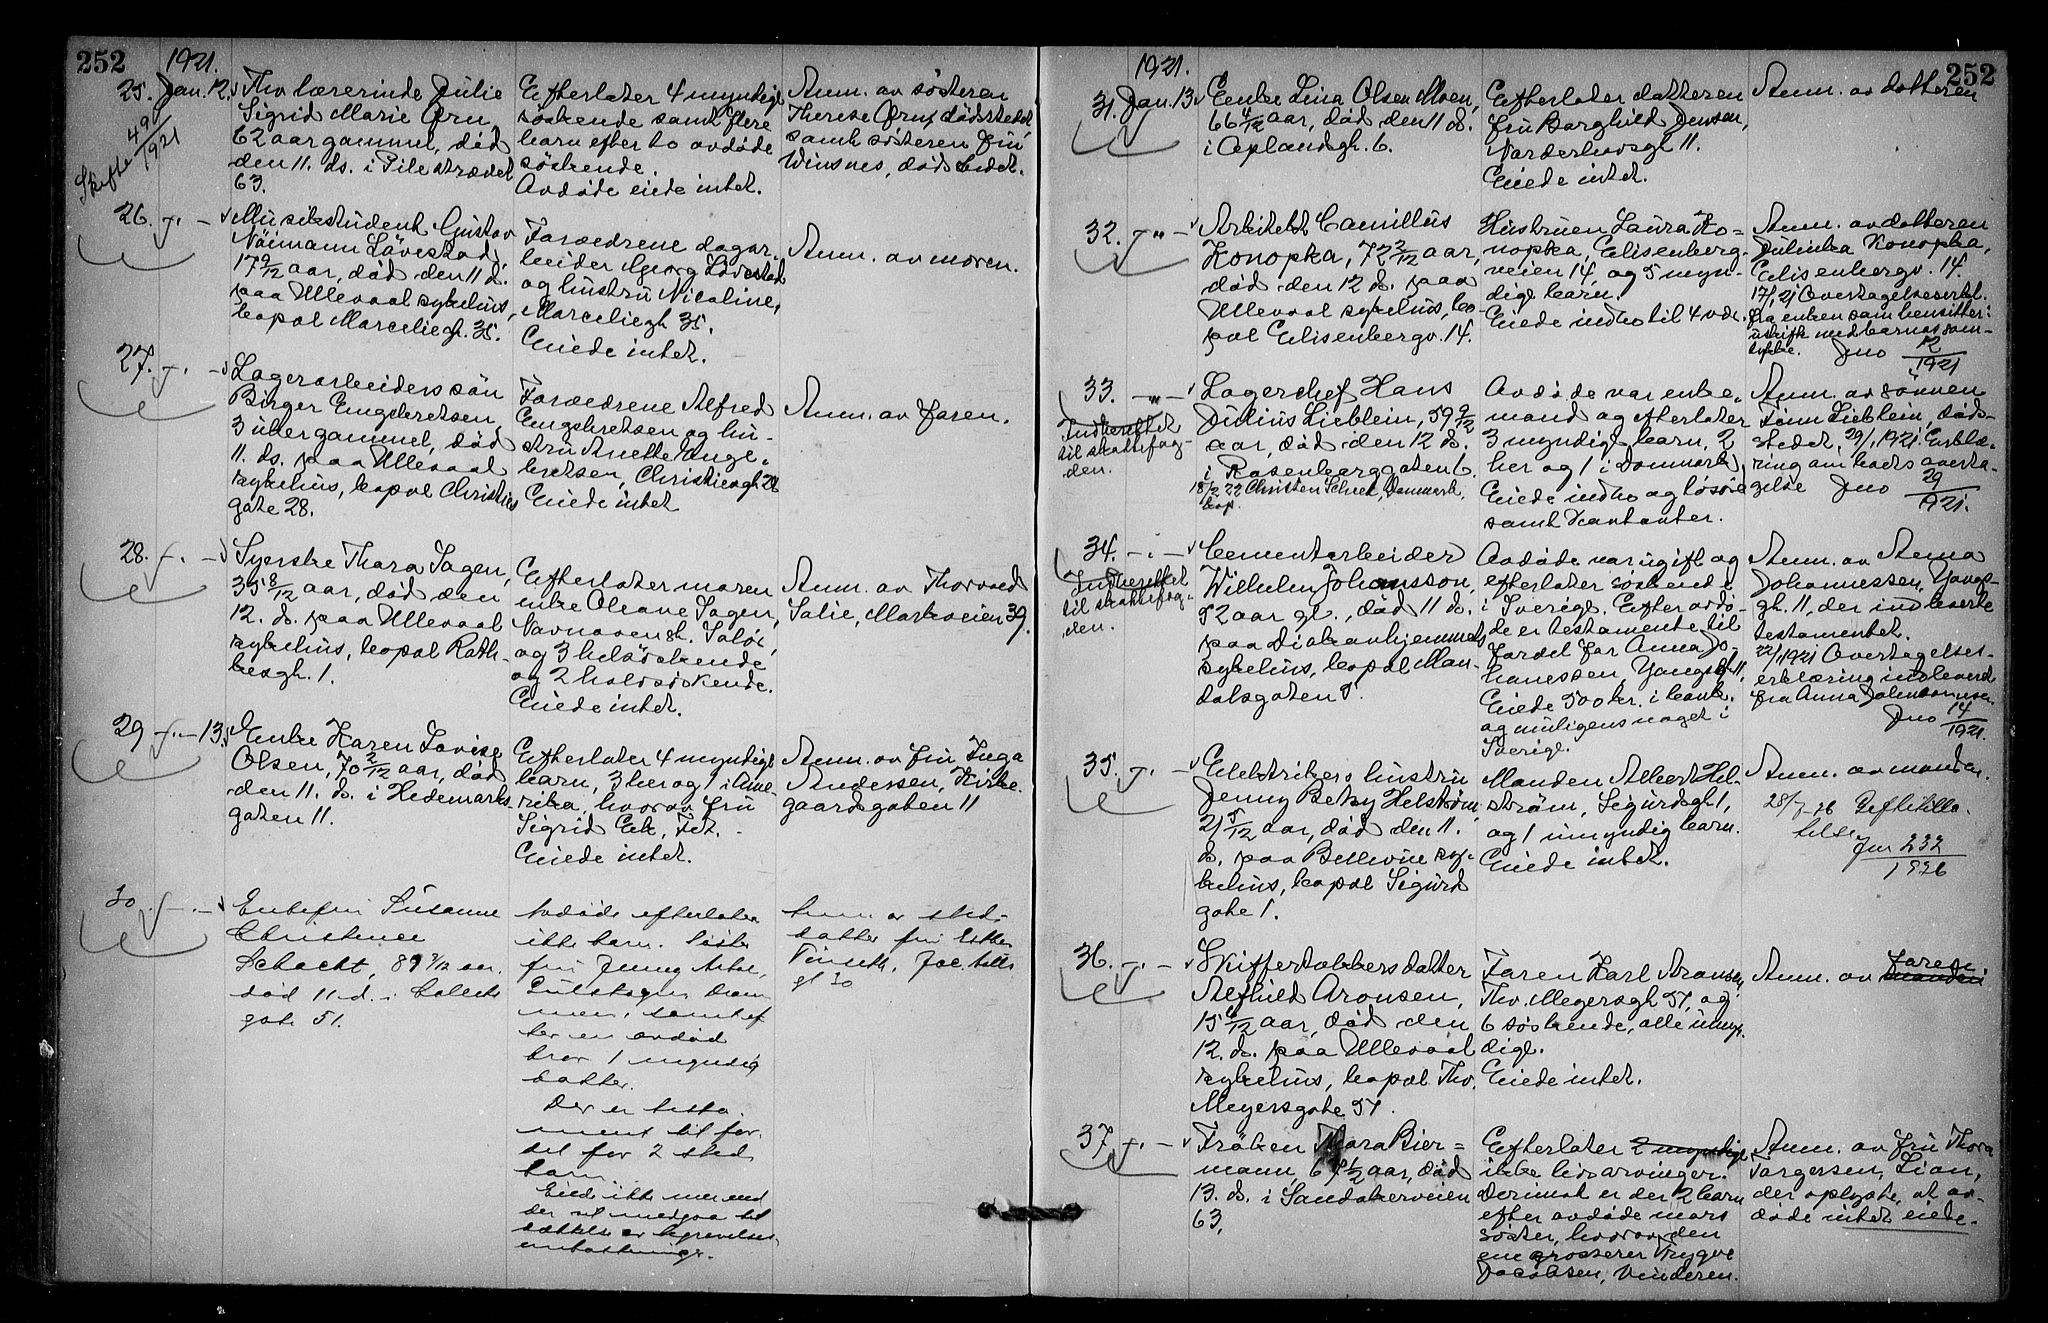 252
1921.
25. Jan. 12.
Skifte 49/1921
Fhv. lærerinde Julie
Sigrid Marie Qrn,
62 aar gammel, død
den 11. ds. i Pilestrædet
63.
Efterlater 4 myndige
søskende samt flere
barn efter to avdøde
søskende.
Avdøde eiede intet.
Anm. av søsteren
Therese Qrn, dødsstedet
samt søsteren Fru
Winsnes, dødsstedet.
26. -"-
Musikstudent Gustav
Näimann Lövestad,
17 9/12 aar, død den 11 d.
paa Ullevaal sykehus,
bopæl Marceliegt. 35.
Forældrene dagar-
beider Georg Lövestad
og hustru Nicoline,
Marceliegt. 35.
Eiede intet.
Anm. av moren.
27. -"-
Lagerarbeiders søn
Birger Engebretsen,
3 uker gammel, død
11. ds. paa Ullevaal
sykehus, bopæl Christies
gate 28.
Forældrene Alfred
Engebretsen og hu-
stru Anette Enge-
bretsen, Christiesgt. 28
Eiede intet
Anm. av faren.
28. -"-
Syerske Thora Sagen,
35 8/12 aar, død den
12. ds. paa Ullevaal
sykehus, bopæl Rath-
kesgt. 1.
Efterlater moren
enke Oleane Sagen,
og 3 helsøskende
og 2 halvsøskende.
Eiede intet.
Anm. av Thorvald
Salie, Markveien 39.
29 -"- 13.
Enke Karen Lovise
Olsen, 70 2/12 aar, død
den 11. ds. i Hedemarks
gaten 11.
Efterlater 4 myndige
barn, 3 her og 1 i Ame-
rika, hvorav fru
Sigrid Ek, Fet.
Eiede intet.
Anm. av Fru Inga
Andersen, Kirke-
gaardsgaten 11
30. -"-
Enkefru Susanne
Christence
Schacht, 89 9/12 aar.
død 11 d. i Colletts
gate 51.
Avdøde efterlater
ikke barn. Søster
fru Jenny
Dram
men, samt ef
ter en avdød
bror 1 myndig
datter.
Der er testa-
ment til for-
del for 2 sted
barn.
Eiede ikke mer end
der vil medgaa til
dækkelse av begravelses
omkostninger.
Anm. av sted-
datter fru Esther
gt 30
1921.
252
31. Jan. 13.
Enke Lina Olsen Moen,
66 4/12 aar, død den 11 ds.
i Oplandsgt. 6.
Efterlater datteren
fru Borghild Jensen,
Norderhovsgt 11.
Eiede intet.
Anm. av datteren
32. -"-
Arkitekt Camillus
Konopka, 72 2/12 aar,
død den 12 ds. paa
Ullevaal sykehus, bo-
pæl Elisenbergv. 14.
Hustruen Laura Ko-
nopka, Elisenberg-
veien 14 og 5 myn-
dige barn.
Eiede indbo til 4 vær.
Anm. av datteren
Julinka Konopka,
Elisenbergv. 14.
17/1 21 Overtagelseserkl.
fra enken som hensitter i
uskifte med barnas sam-
tykke. Jno 12/1921
33. -"-
Indberettet
til skattefog-
den.
Lagerchef Hans
Julius Lieblein, 59 9/12
aar, død den 12 ds.
i Rosenborggaten 6
18/2 22 Christen Scheel, Danmark,
Avdøde var enke-
mand og efterlater
3 myndige barn, 2
her og 1 i Danmark,
Eiede indbo og løsøre
samt kontanter.
Anm. av sønnen
Finn Lieblein, døds-
stedet. 29/1 1921 Erklæ-
ring om boets overta-
gelse Jno 29/1921.
34. -"-
Indberettet
til skattefog-
den.
Cementarbeider
Wilhelm Johansson,
52 aar gl., død 11 ds.
paa Diakonhjemmets
sykehus, bopæl Man-
dalsgaten 5.
Avdøde var ugift og
efterlater søskende
i Sverige. Efter avdø-
de er testamente til
fordel for Anna Jo-
hanessen, Youngsgt. 11.
Eiede 500 kr. i bank
og muligens noget i
Sverige.
Anm. av Anna
Johannessen, Youngs-
gt. 11, der indleverte
testamentet.
22/1 1921 Overtagelses-
erklæring indleveret
fra Anna Johannessen.
Jno 14/1921.
35. -"-
Elektrikers hustru
Jenny Betsy Helström
21 5/12 aar, død den 11.
ds. paa Bellevue sy-
kehus, bopæl Sigurd
gate 1.
Manden Albert Hel-
ström, Sigurdsgt 1,
og 1 umyndig barn.
Eiede intet.
Anm. av manden.
28/7 26 Gjeftetilla-
telse
Jnr 232
1926
36. -"-
Skiffertækkersdatter
Alfhild Aronsen,
15 6/12 aar, død den
12. ds. paa Ullevaal
sykehus, bopæl Thv.
Meyersgate 57.
Faren Karl Aronsen,
Thv. Meyersgt 57, og
6 søskende, alle umyn-
dige.
Eiede intet.
Anm. av manden faren
37. -"-
Frøken Thora Bier-
mann, 67 1/2 aar, død
13. ds. i Sandakerveien
63.
Efterlater 2 myndige
ikke livsarvinger.
Derimot er der 2 barn
efter avdøde mors
søster, hvorav den
ene grosserer Trygve
Jacobsen, Vinderen.
Anm. av fru Thora
Torgersen, Lian,
der oplyste, at av-
døde intet eiede.